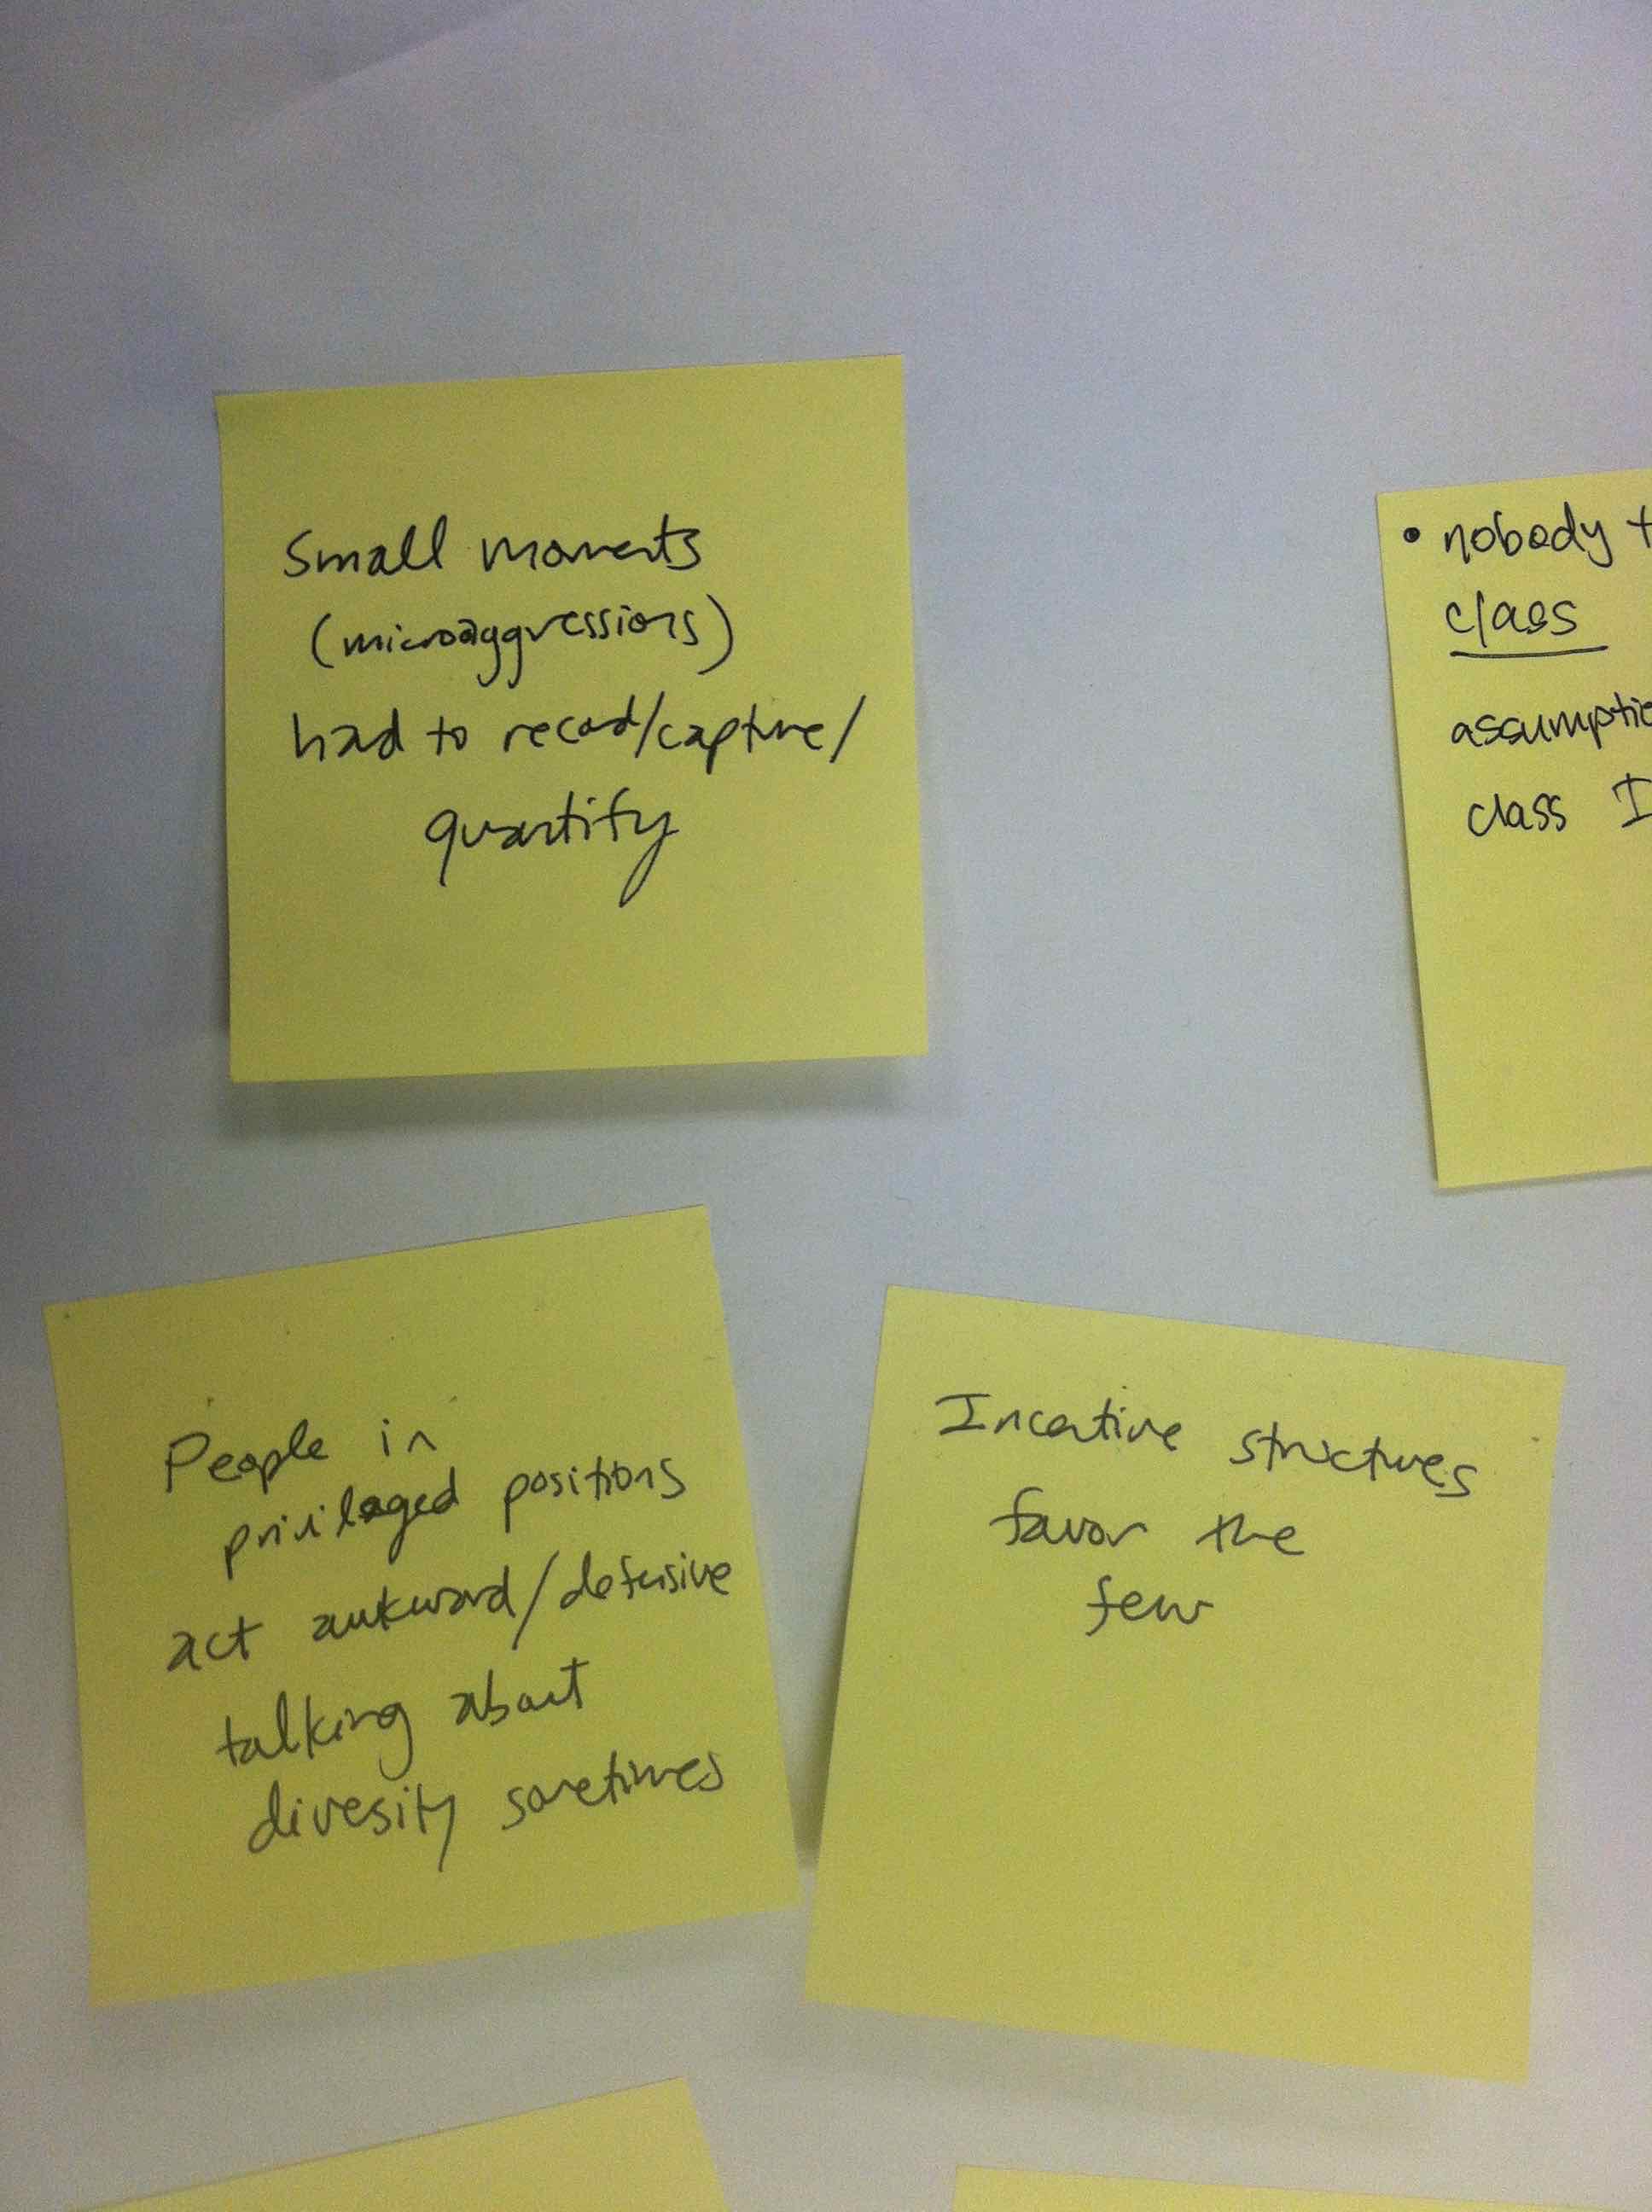 Small moments
(microaggressions)
had to record/capture/
quantify
• nobody t
class
assumptio
class I
People in
privilaged positions
act awkward/defensive
talking about
divesity sometimes
Incentive structures
favor the
few